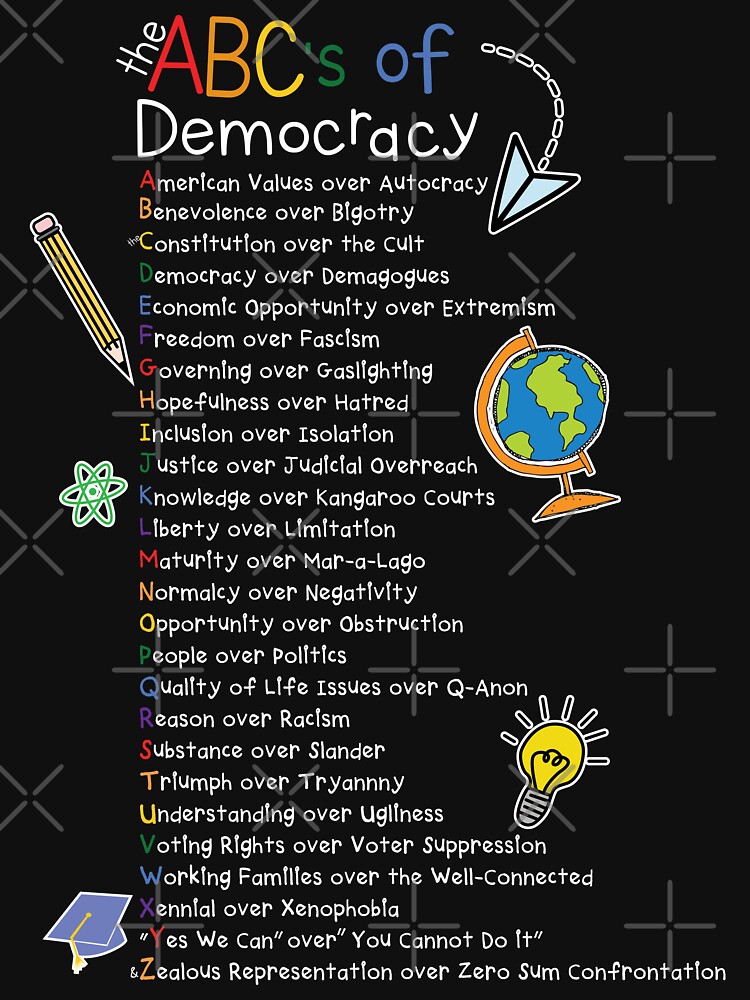 the ABC's of
Democracy
American Values over Autocracy
Benevolence over Bigotry
the Constitution over the Cult
Democracy over Demagogues
Economic Opportunity over Extremism
Freedom over Fascism
Governing over Gaslighting
Hopefulness over Hatred
Inclusion over Isolation
Justice over Judicial Overreach
Knowledge over Kangaroo Courts
Liberty over Limitation
Maturity over Mar-a-Lago
Normalcy over Negativity
Opportunity over Obstruction
People over Politics
Quality of Life Issues over Q-Anon
Reason over Racism
Substance over Slander
Triumph over Tryannny
Understanding over Ugliness
Voting Rights over Voter Suppression
Working Families over the Well-Connected
Xennial over Xenophobia
"Yes We Can" over "You Cannot Do it"
& Zealous Representation over Zero Sum Confrontation